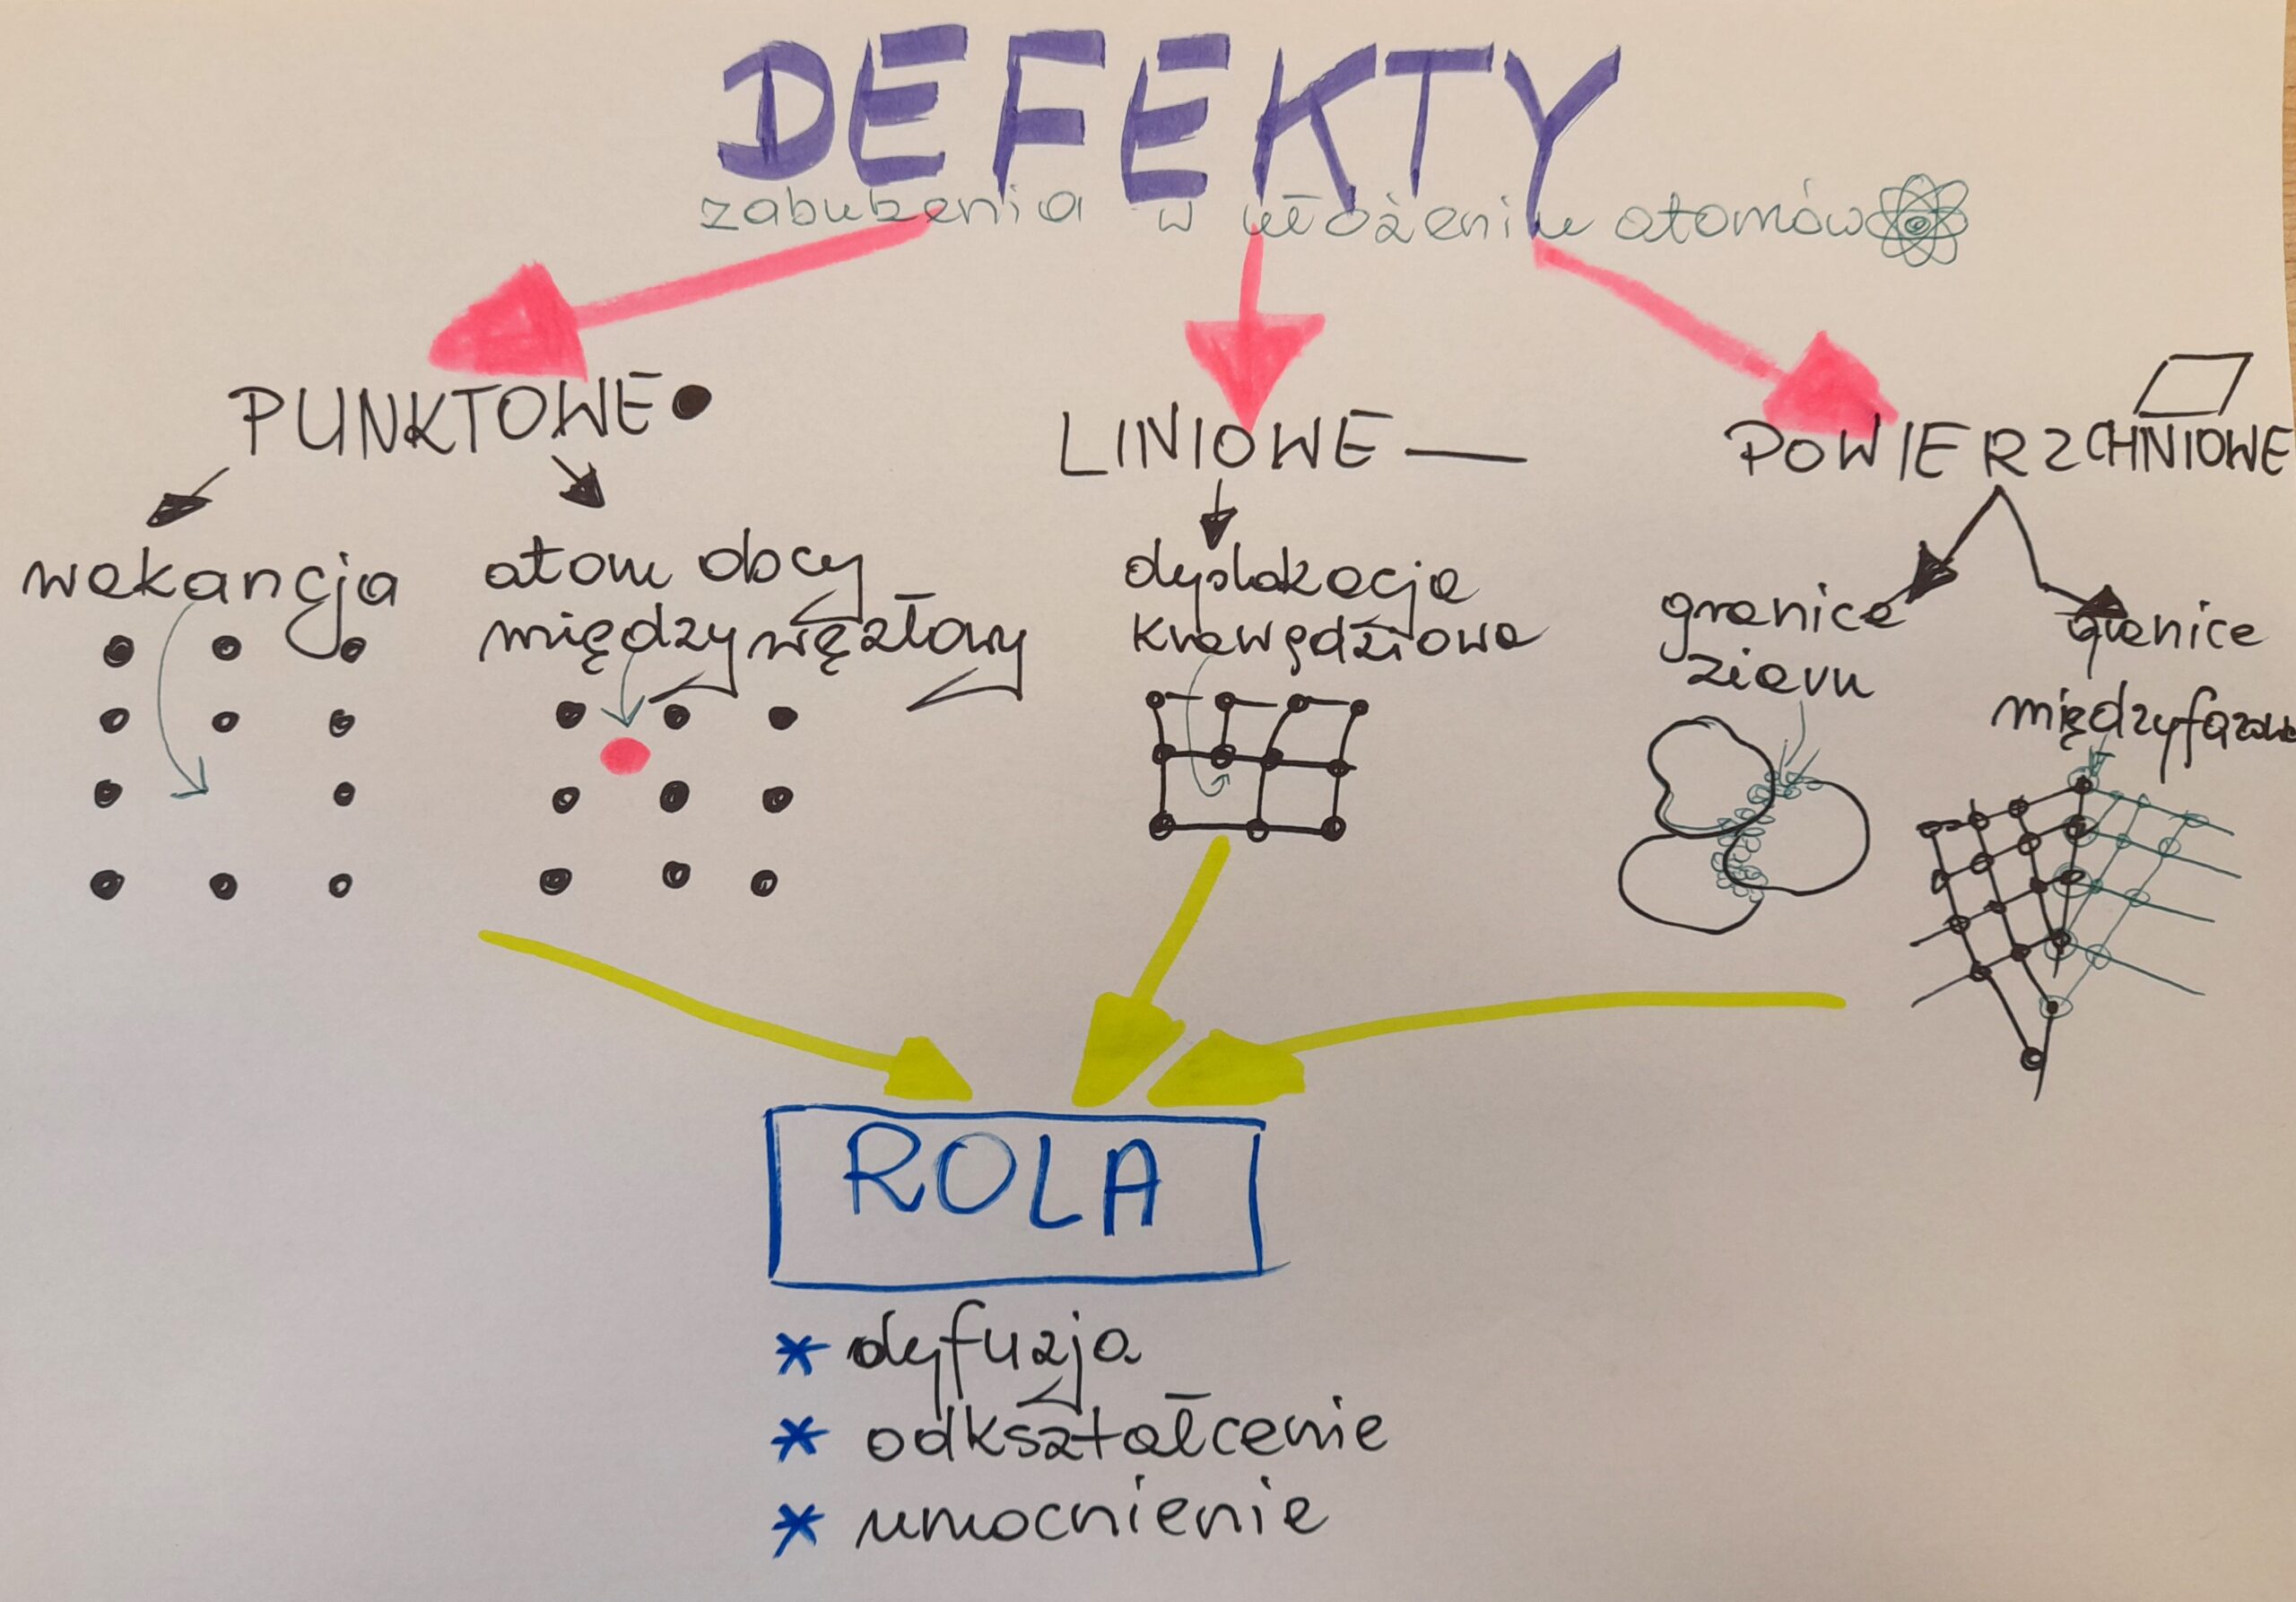 DEFEKTY
zaburzenia w ułożeniu atomów
PUNKTOWE
LINIOWE
POWIERZCHNIOWE
wakancja
atom obcy
międzywęzłowy
dyslokacja
krawędziowa
granice
ziarn
granice
międzyfazowe
ROLA
* dyfuzja
* odkształcenie
* umocnienie